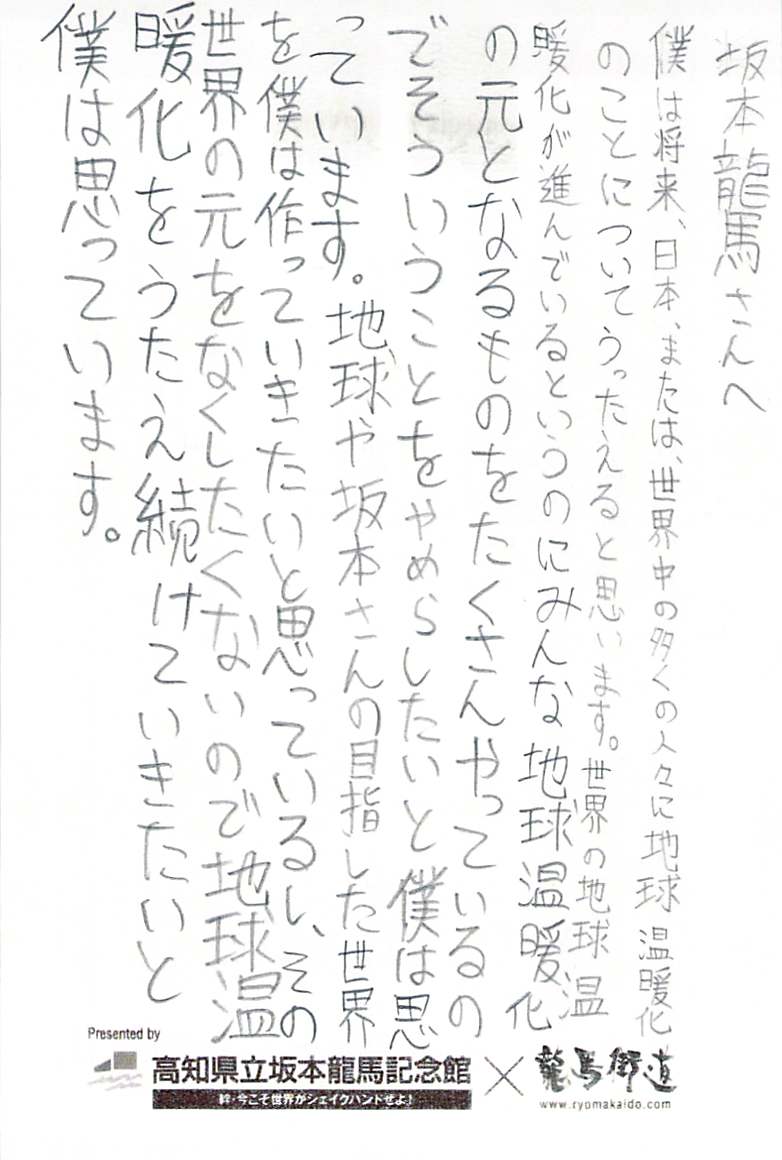 坂本龍馬さんへ
僕は将来、日本、または、世界中の多くの人々に地球温暖化
のことについてうったえると思います。世界の地球温
暖化が進んでいるというのにみんな地球温暖化
の元となるものをたくさんやっているの
でそういうことをやめらしたいと僕は思
っています。地球や坂本さんの目指した世界
を僕は作っていきたいと思っているし、その
世界の元をなくしたくないので地球温
暖化をうたえ続けていきたいと
僕は思っています。
Presented by
高知県立坂本龍馬記念館×龍馬街道
絆・今こそ世界がシェイクハンドぜよ!
www.ryomakaido.com